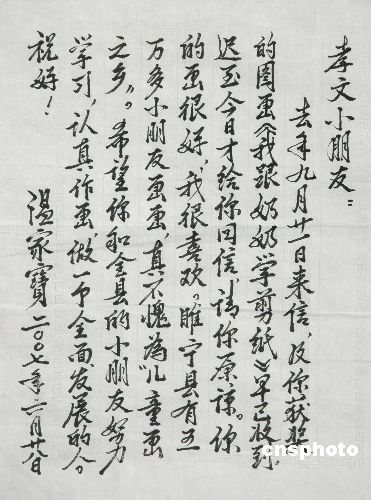 孝文小朋友：
去年九月廿一日来信，及你获奖
的图画《我跟奶奶学剪纸》早已收到，
迟至今日才给你回信，请你原谅。你
的画很好，我很喜欢。睢宁县有五
万多小朋友画画，真不愧为“儿童画
之乡”。希望你和全县的小朋友努力
学习，认真作画，做一个全面发展的人。
祝好！
温家寶 二〇〇七年二月廿八日
cnsphoto